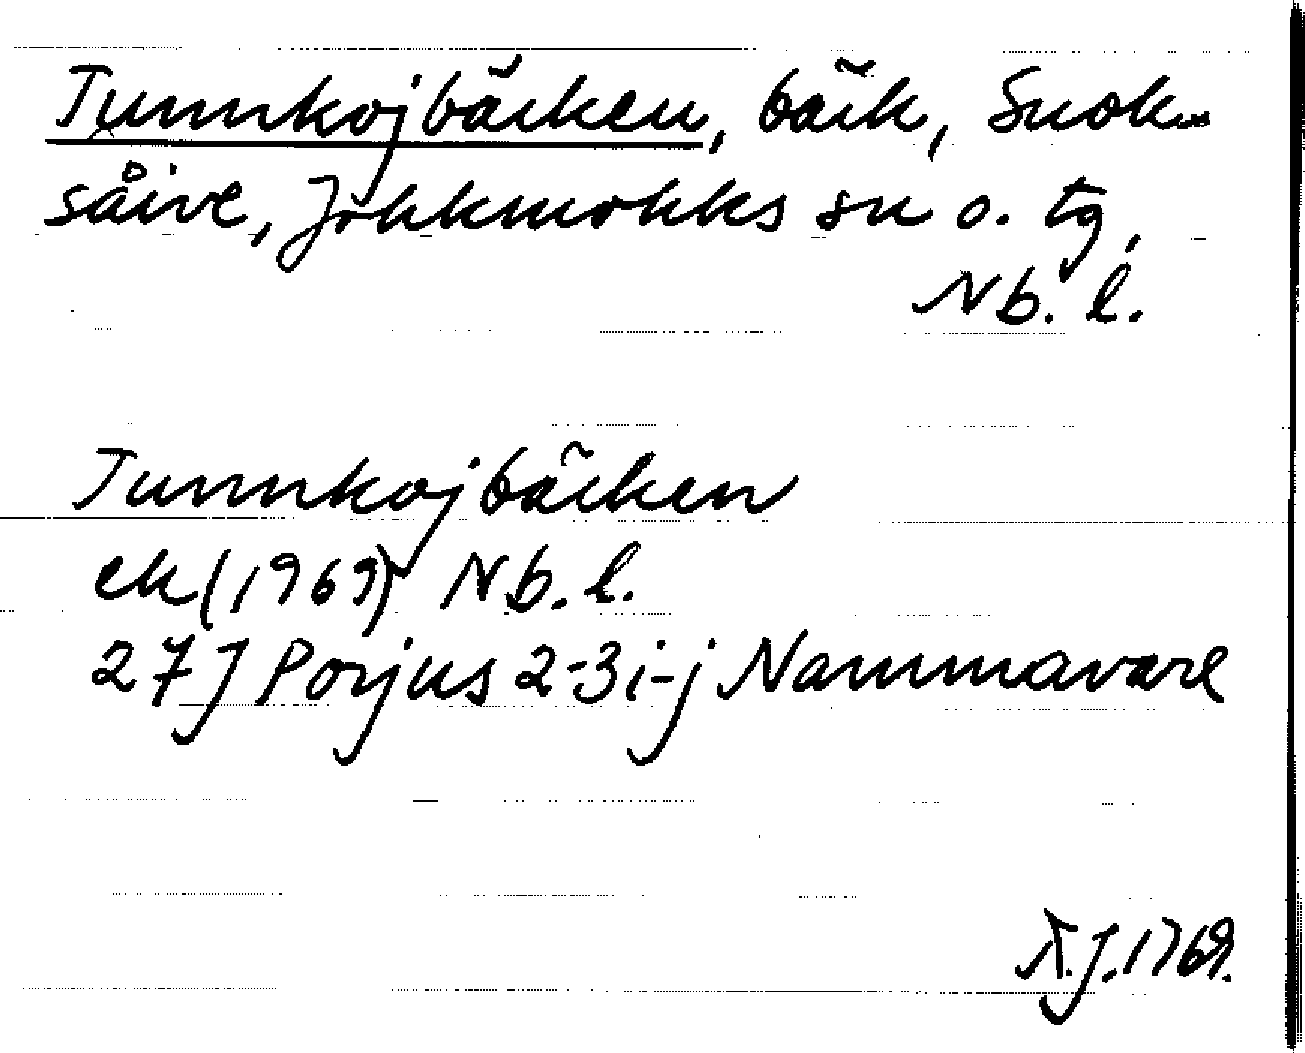 Tunnkojbäcken, bäck, Suok-
såive, Jokkmokks sn o. tg,
Nb. l.
Tunnkojbäcken
ek (1969) Nb. l.
27 J Porjus 2-3 i-j Nammavare
1969.